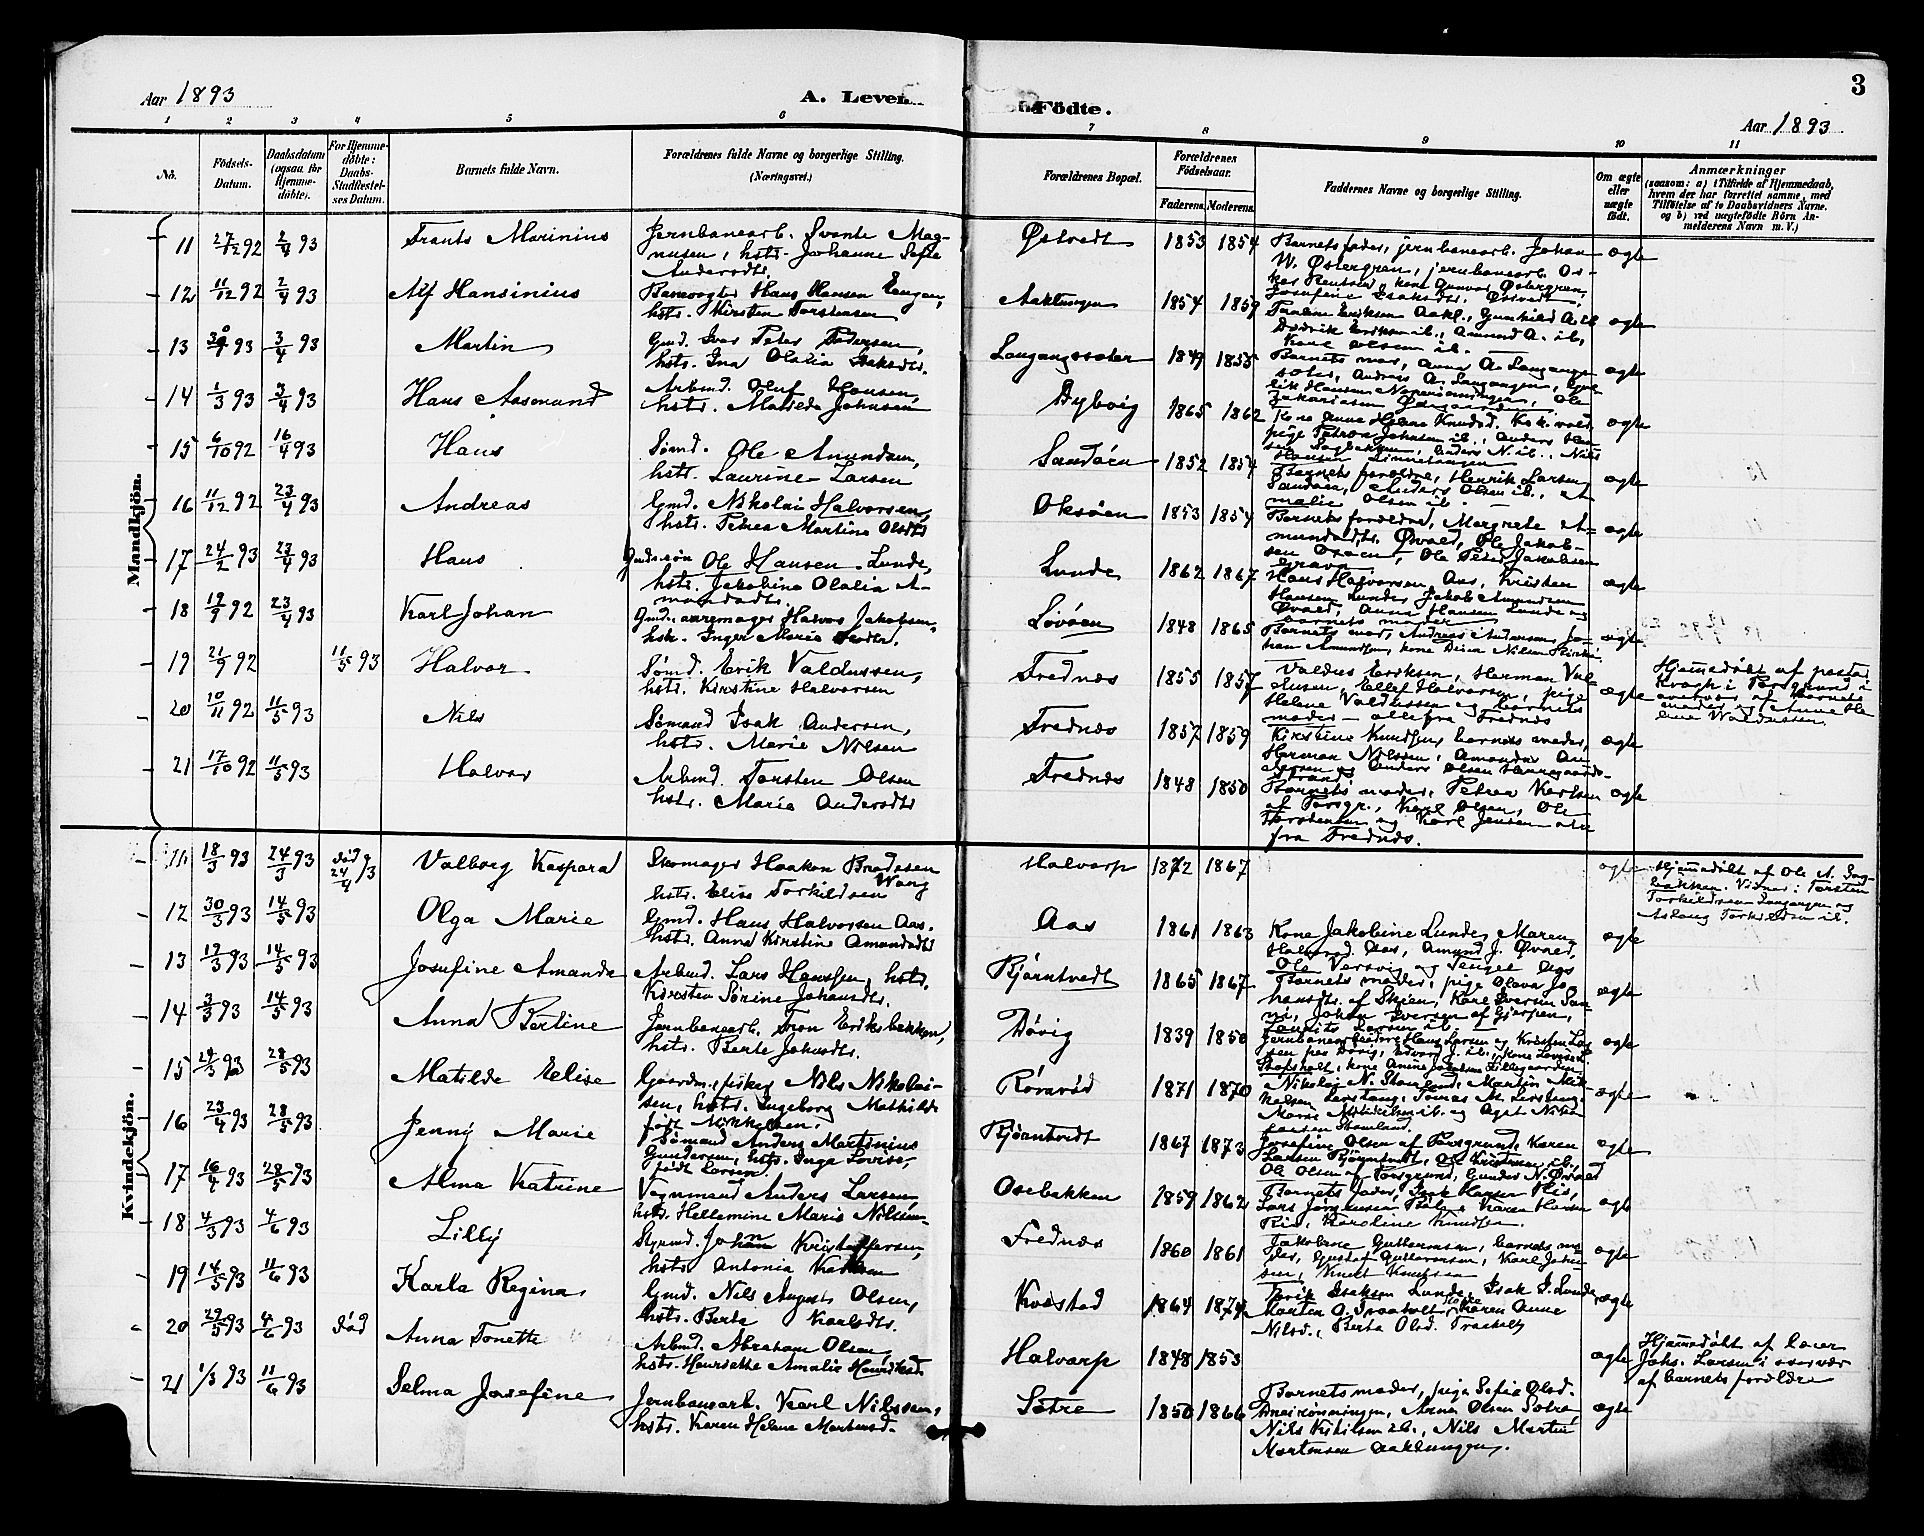 3
Aar 1893
A. Levende Födte.
Aar 1893
1 2 3 4 5 6 7 8 9 10 11
No.
Födsels-Datum.
Daabsdatum (ogsaa for Hjemme-döbte).
For Hjemme-döbte: Daabs-Stadfæstel-ses Datum.
Barnets fulde Navn.
Forældrenes fulde Navne og borgerlige Stilling.
(Næringsvei.)
Forældrenes Bopæl.
Forældrenes Födselsaar.
Faderens. Moderens.
Faddernes Navne og borgerlige Stilling.
Om ægte eller uægte födt.
Anmærkninger
(saasom: a) i Tilfælde af Hjemmedaab,
hvem der har forrettet samme, med
Tilföielse af to Daabsvidners Navne.
og b) ved uægtefödte Börn An-
melderens Navn m. V.)
Mandkjön.
11 27/12 92 2/4 93 Frants Marinius Jernbanearb. Svante Mag-
nusen, hstr. Johanne Sofie
Andersdtr. Østvedt 1853 1854 Barnets fader, jernbanearb. Johan
W. Østergren, jernbanearb. Os-
kone Gunvor Østergren,
Josefine Isaksdtr. Østvedt. ægte
12 11/12 92 2/4 93 Alf Hansinius Banevogter Hans Hansen Eengen,
hstr. Kirsten Torstensen Aaklungen 1854 1859 Eriksen Aakl., Gunhild A. ib.
Didrik Eriksen ib., Amund A. ib.
Karl Olsen ib. ægte
13 93 3/4 93 Martin Gmd. Ivar Peter Pedersen,
hstr. Ina Olalia Isaksdtr. Langangssæter 1849 1855 Barnets mor, Anna A. Langang-
sæter, Andreas A. Langangen, ægte
14 1/3 93 3/4 93 Hans Aasmund Arbmd. Oluf Hansen,
hstr. Matilde Johnsen Dybvig 1865 1862 Kone Anne Helene Knudsd.
pige Petron Johnsen ib., Anders Han-
sen Sagbakken, Anders N. ib., Nils
Hansen ægte
15 6/10 92 16/4 93 Hans Sømd. Ole Amundsen,
hstr. Laurine Larsen Sandøen 1852 1854 Barnets forældre, Henrik Larsen
Sandøen, Anders Olsen ib., A-
malie Olsen ib. ægte
16 11/12 92 23/4 93 Andreas Gmd. Nikolai Halvorsen,
hstr. Petrea Martine Olsdtr Oksøen 1853 1854 Barnets forældre, Margrete A-
mundsdtr. Øvald, Ole Jakob-
sen Oxøen, Ole Peter Jakobsen
Gravn ægte
17 24/2 93 23/4 93 Hans Gmds.søn Ole Hansen Lunde,
hstr. Jakobine Olalia A-
mundsdtr. Lunde 1862 1867 Hans Halvorsen Aas, Kristen
Hansen Lunde, Jakob Amundsen
Øvald, Anna Hansen Lunde og
barnets moder ægte
18 19/9 92 23/4 93 Karl Johan Gmd., aaremager Halvor Jakobsen,
hstr. Inger Marie Løvøen 1848 1865 Barnets mor, Andreas Andersen, Jo-
han Amundsen, kone Nilsen ægte
19 21/9 92 11/5 93 Halvor Sømd. Erik Valdussen,
hstr. Kirstine Halvorsen Frednæs 1855 1857 Valdus Eriksen, Herman Val-
dusen, Ellef Halvorsen, pige
Helene Valdussen og barnets
moder – alle fra Frednæs ægte Hjemmedøbt af pastor
Kragh i Porsgrund i
overvær af barnets
moder og Anne He-
lene Waldussen.
20 10/11 92 11/5 93 Nils Sømand Isak Andersen,
hstr. Marie Nilsen Frednæs 1857 1859 Kirstine Knudsen, barnets moder,
Herman Nilssen, Amandus An-
dersen og Anders Olsen
strand ægte
21 17/10 92 11/5 93 Halvor Arbmd. Torsten Olsen
hstr. Marie Andersdtr Frednæs 1848 1850 Barnets moder, Petrea Karlsen
af Porsgr., Karl Olsen, Ole
Torstensen og Karl Jensen alle
fra Frednæs. ægte
Kvindekjön.
11 18/3 93 24/3 93 død 24/4 93 Valborg Kaspara Skomager Haakon Brodesen
Wang
hstr. Elise Torkildsen Halvarp 1872 1867 ægte Hjemmedøbt af Ole A. Sag-
bakken. Vidner: Torsten
Torkildsen Langangen og
Aslaug Torkildsen ib.
12 30/3 93 14/5 93 Olga Marie Gmd. Hans Halvorsen Aas,
hstr. Anna Kirstine Amundsdtr Aas 1861 1863 Kone Jakobine Lunde, Maren
Halvorsd. Aas, Amund J. Øvald,
Ole Versvig og Tengel Aas ægte
13 13/3 93 14/5 93 Josefine Amanda Arbmd. Lars Hanssen, hstr.
Kirsten Sørine Johansdtr. Bjørntvedt 1865 1867 Barnets moder, pige Oleva Jo-
hansdtr. af Skien, Karl Iversen San-
ni, Johan Iversen af Gjerpen,
Laurits Larsen ib. ægte
14 3/3 93 14/5 93 Anna Bertine Jernbanearb. Tron Eriksbakken,
hstr. Berte Johnsdtr. Døvig 1839 1850 Jernbanearbeiderne Hans Larsen og Kristen Lar-
sen paa Døvig, Edvard J. ib., kone Lovise
Stafsholt, kone Anine Jakobsen Lillegaarden ægte
15 24/3 93 28/5 93 Matilde Elise Gaardm., fisker Nils Nikolai-
sen, hstr. Ingeborg Mathilde
født Mikkelsen. Røraröd 1871 1870 Nikolaj N. Stamland, Martin Mik-
kelsen Lerstang, Tomas M. Lerstang,
Maren Mikkelsen ib. og Aget Nilsen
Stamland. ægte
16 23/4 93 28/5 93 Jenny Marie Sømand Anders Martinius
Gundersen, hstr. Inga Lovise,
født Larsen. Bjørntvedt 1867 1873 Josefine Olsen af Porsgrund, Karen
Larsen Bjørntvedt, Ole Kristensen ib.,
Ole Olsen af Porsgrund, Gunder N. Øvald ægte
17 16/4 93 28/5 93 Alma Katrine Vognmand Anders Larsen
hstr. Hellemine Marie Nilsen Osebakken 1859 1862 Barnets fader, Isak Hansen Ris,
Lars Jørgensen Pøle, Karen Hansen
Ris, Karoline Knudsen. ægte
18 4/3 93 4/6 93 Lilly Styrmd. Johan Kristoffersen
hstr. Antonia Frednæs 1860 1861 Jakobine Guttormsen, barnets mo-
der, Gustaf Guttormsen, Karl John-
sen, Knut Knutsen ægte
19 14/5 93 11/6 93 Karla Regina Gmd. Nils August Olsen,
hstr. Berta Karlsdtr. Kvæstad 1864 1874 Isaksen Lunde, Isak I. Lunde
Morten O. Traaholt, Karen Anne
Nilsd., Berta Olsd. Traaholt ægte
20 29/5 93 4/6 93 død Anna Tonette Arbmd. Abraham Olsen,
hstr. Henriette Amalie Halvarp 1848 1853 ægte Hjemmedøbt af lærer
Johs. Larsen i overvær
af barnets forældre
21 1/3 93 11/6 93 Selma Josefine Jernbanearb. Karl Nilssen,
hstr. Karen Helene Mortensd. Sætre 1850 1866 Barnets moder, pige Sofie Olsd.
Arne Olsen Sætre
Nils Kittilsen ib., Nils Martin
Mortensen Aaklungen. ægte